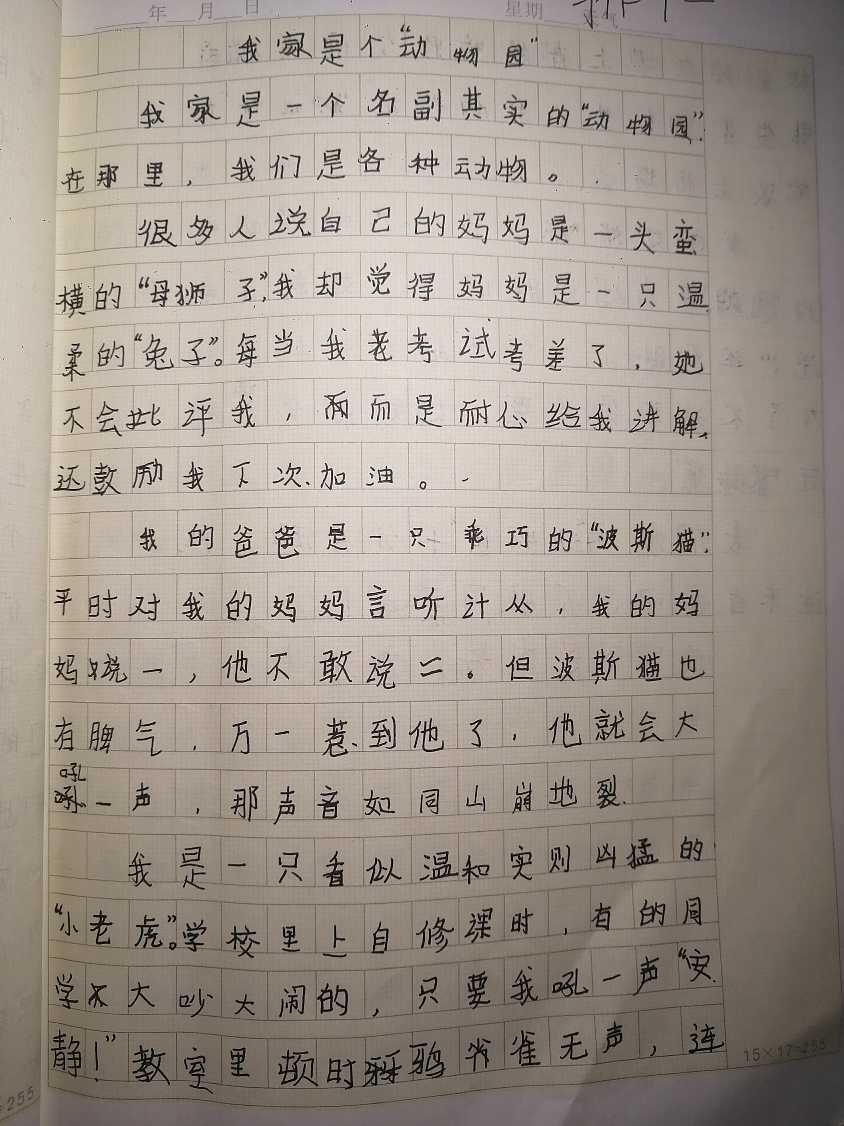 年 月 日 星期
我家是个“动物园”
我家是一个名副其实的“动物园”.
在那里，我们是各种动物。
很多人说自己的妈妈是一头蛮
横的“母狮子”,我却觉得妈妈是一只温
柔的“兔子”。每当我老考试考差了，她
不会批评我，而是耐心给我讲解,
还鼓励我下次加油。
我的爸爸是一只乖巧的“波斯猫”.
平时对我的妈妈言听计从，我的妈
妈说一，他不敢说二。但波斯猫也
有脾气，万一惹到他了，他就会大
吼一声，那声音如同山崩地裂.
我是一只看似温和实则凶猛的
“小老虎”。学校里上自修课时，有的同
学大吵大闹的，只要我吼一声“安
静！”教室里顿时鸦雀无声，连
15×17=255
255